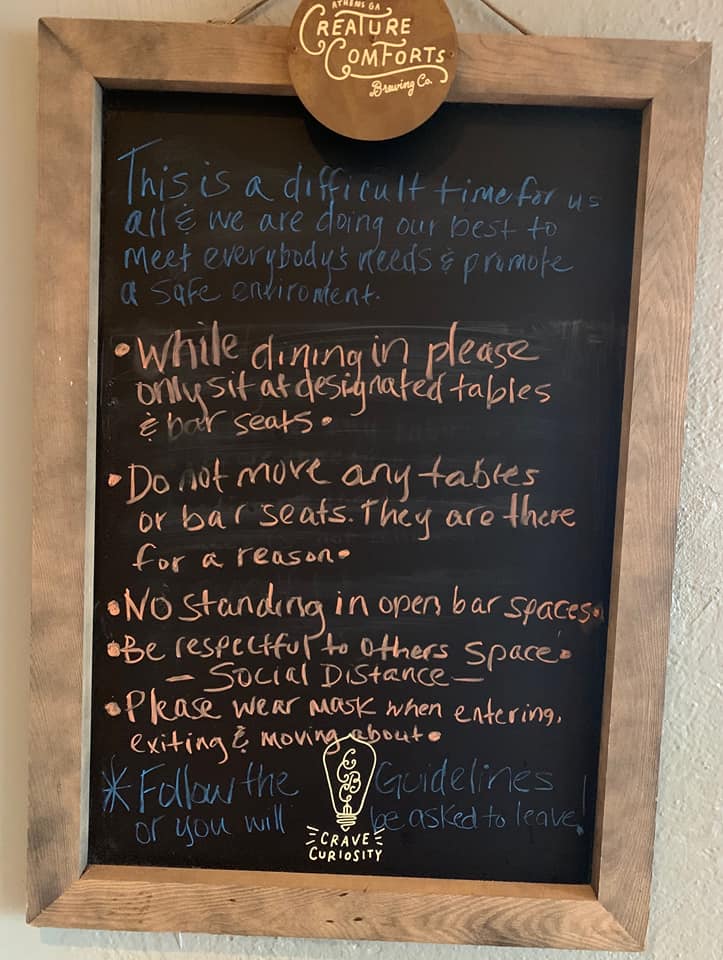 ATHENS GA
CREATURE
COMFORTS
Brewing Co.
This is a difficult time for us
all & we are doing our best to
meet everybody's needs & promote
a safe enviroment.
• While dining in please
only sit at designated tables
& bar seats.
• Do not move any tables
or bar seats. They are there
for a reason.
• No standing in open bar spaces.
• Be respectful to others space.
– Social Distance –
• Please wear mask when entering,
exiting & moving about.
* Follow the Guidelines
or you will be asked to leave!
CCBC
CRAVE
CURIOSITY